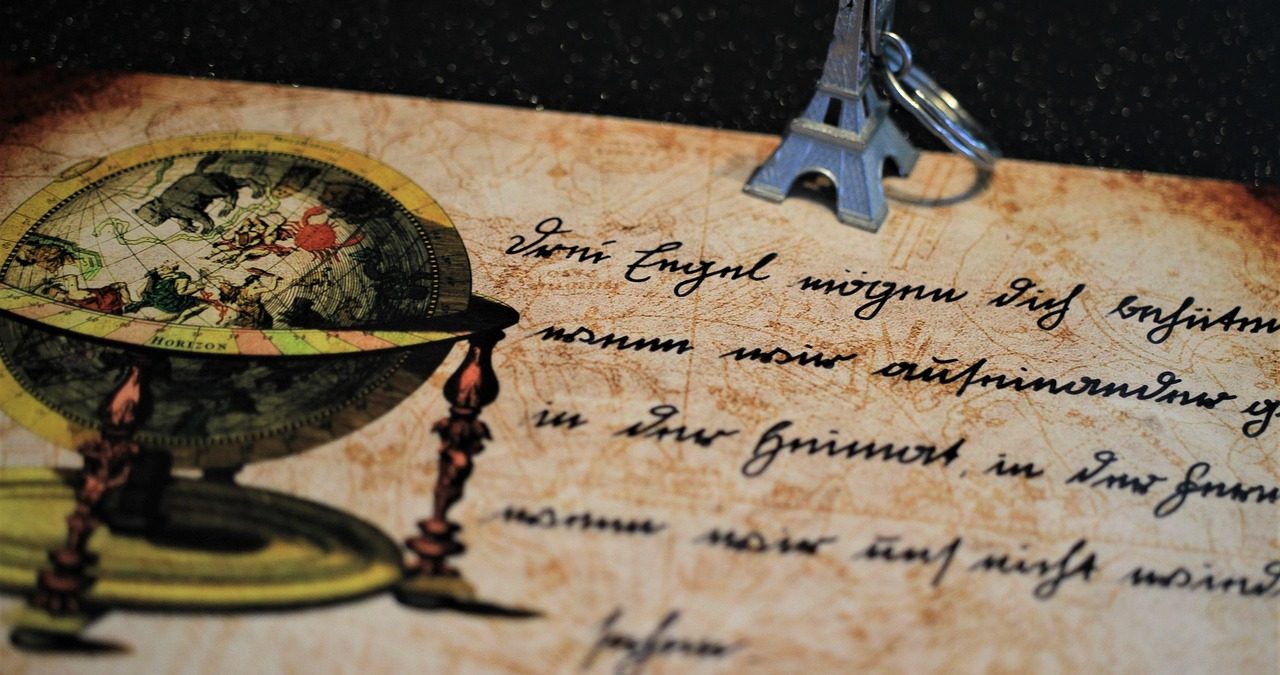 HORIZON
Drei Engel mögen dich behüten
wenn wir auseinander g
in der Heimat, in der Fern
wenn wir uns nicht wied